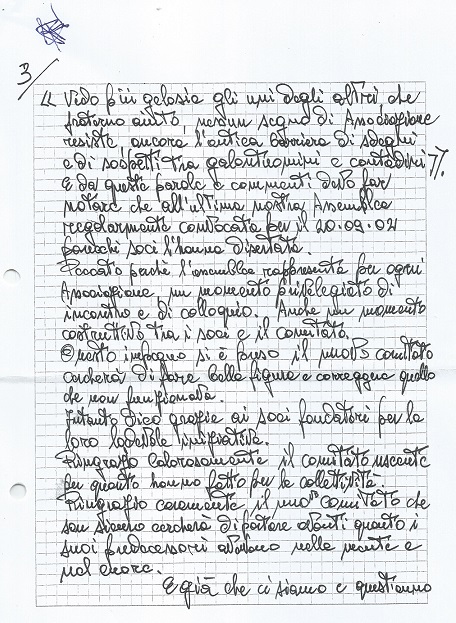 3/
"Vedo più gelosia gli uni degli altri, che
fraterno aiuto, nessun sogno di Associazione
resiste ancora l'antica barriera di sdegni
e di sospetti tra galantuomini e contadini".
E da queste parole e commenti devo far
notare che all'ultima nostra Assemblea
regolarmente convocata per il 20.09.02
parecchi soci l'hanno disertata.
Peccato perchè l'assemblea rappresenta per ogni
Associazione un momento privilegiato di
incontro e di colloquio. Anche un momento
costruttivo tra i soci e il comitato.
Questo impegno si è preso il nuovo comitato
cercherà di fare bella figura e correggere quello
che non funzionava.
Intanto dico grazie ai soci fondatori per la
loro lodevole iniziativa.
Ringrazio calorosamente il comitato uscente
per quanto hanno fatto per la collettività.
Ringrazio caramente il nuovo comitato che
son sicuro cercherà di portare avanti quanto i
suoi predecessori avevano nella mente e
nel cuore.
E già che ci siamo e quest'anno